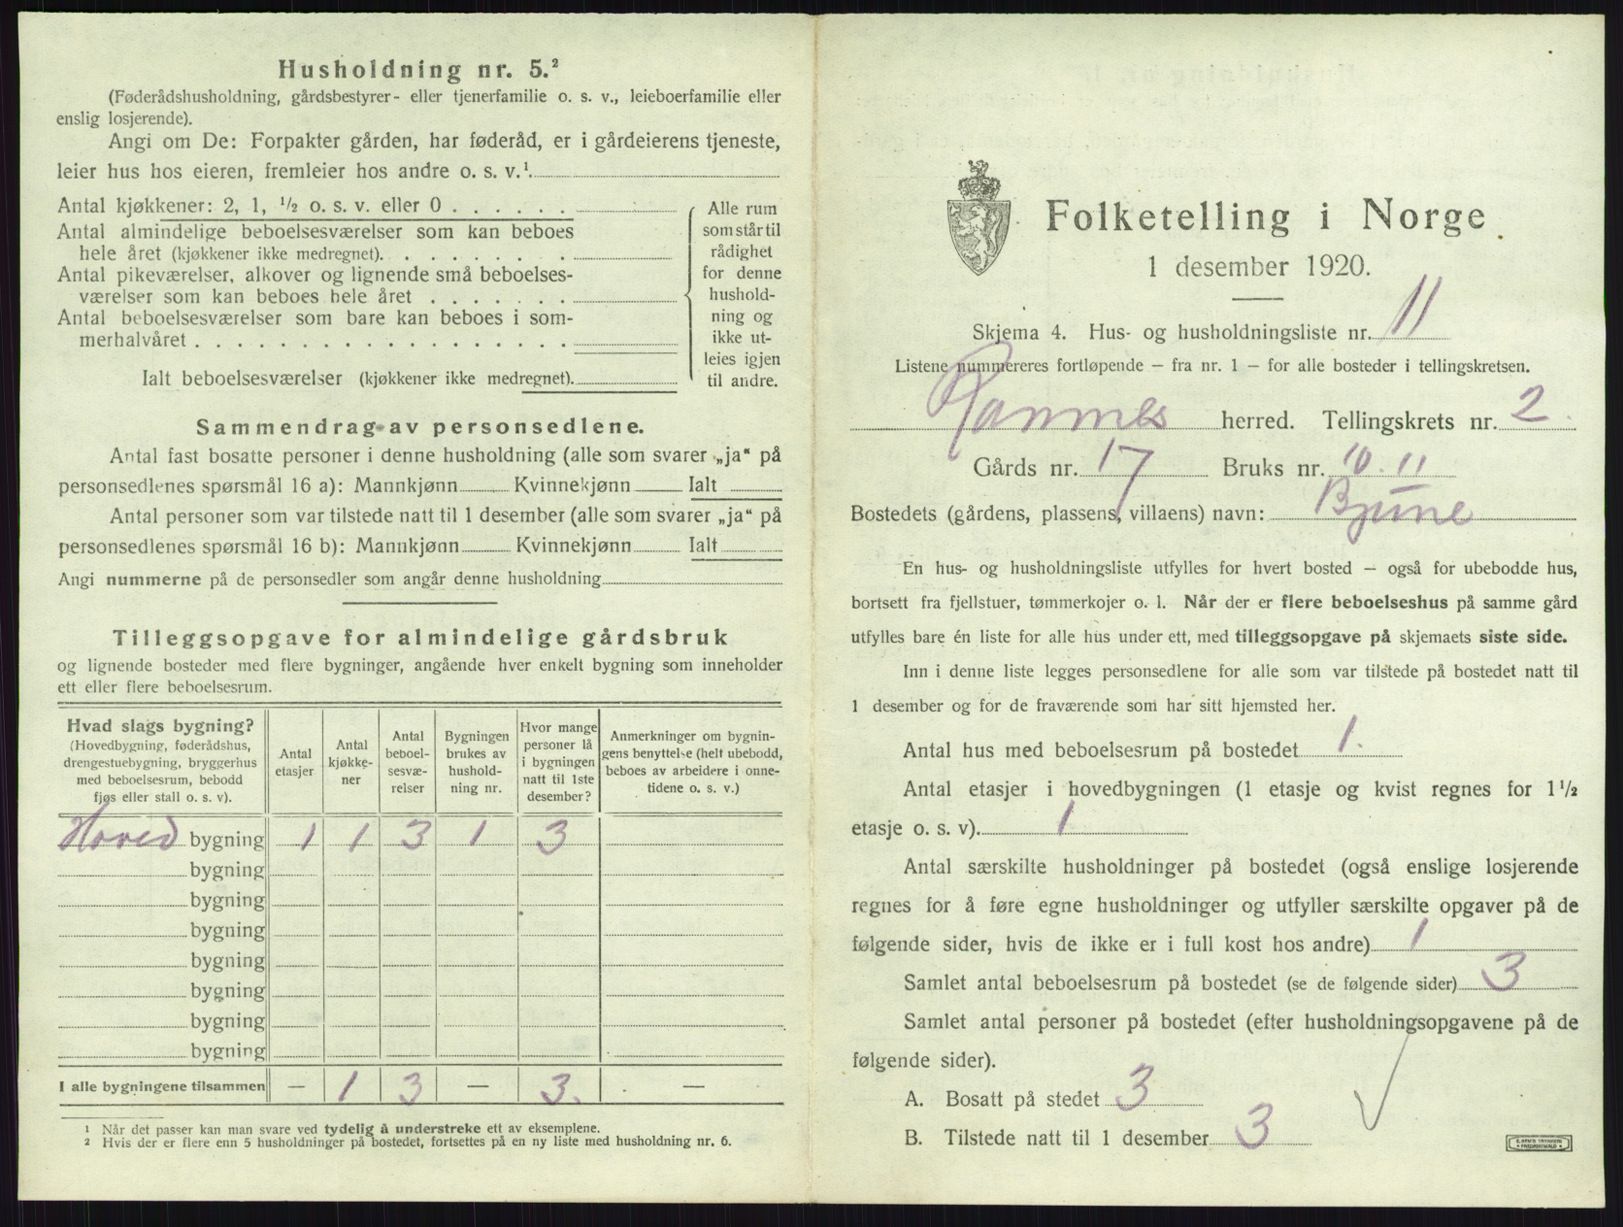 Husholdning nr. 5.²
(Føderådshusholdning, gårdsbestyrer- eller tjenerfamilie o. s. v., leieboerfamilie eller
enslig losjerende).
Angi om De: Forpakter gården, har føderåd, er i gårdeierens tjeneste,
leier hus hos eieren, fremleier hos andre o. s. v.¹
Antal kjøkkener: 2, 1, ½ o. s. v. eller 0 . . . . . .
Antal almindelige beboelsesværelser som kan beboes
hele året (kjøkkener ikke medregnet). . . . . . . .
Antal pikeværelser, alkover og lignende små beboelses-
værelser som kan beboes hele året . . . . . . .
Antal beboelsesværelser som bare kan beboes i som-
merhalvåret . . . . . . . . . . . . . . . . . .
Ialt beboelsesværelser (kjøkkener ikke medregnet).
Alle rum
som står til
rådighet
for denne
hushold-
ning og
ikke ut-
leies igjen
til andre.
Sammendrag av personsedlene.
Antal fast bosatte personer i denne husholdning (alle som svarer „ja“ på
personsedlenes spørsmål 16 a): Mannkjønn Kvinnekjønn Ialt
Antal personer som var tilstede natt til 1 desember (alle som svarer „ja“ på
personsedlenes spørsmål 16 b): Mannkjønn Kvinnekjønn Ialt
Angi nummerne på de personsedler som angår denne husholdning
Tilleggsopgave for almindelige gårdsbruk
og lignende bosteder med flere bygninger, angående hver enkelt bygning som inneholder
ett eller flere beboelsesrum.
Hvad slags bygning?
(Hovedbygning, føderådshus,
drengestuebygning, bryggerhus
med beboelsesrum, bebodd
fjøs eller stall o. s. v).
Antal
etasjer
Antal
kjøkke-
ner
Antal
beboel-
sesvæ-
relser
Bygningen
brukes av
hushold-
ning nr.
Hvor mange
personer lå
i bygningen
natt til 1ste
desember?
Anmerkninger om bygnin-
gens benyttelse (helt ubebodd,
beboes av arbeidere i onne-
tidene o. s. v.)
Hoved bygning 1 1 3 1 3
bygning
bygning
bygning
bygning
bygning
bygning
bygning
I alle bygningene tilsammen — 1 3 — 3. —
¹ Når det passer kan man svare ved tydelig å understreke ett av eksemplene.
² Hvis der er flere enn 5 husholdninger på bostedet, fortsettes på en ny liste med husholdning nr. 6.
Folketelling i Norge
1 desember 1920.
Skjema 4. Hus- og husholdningsliste nr. 11
Listene nummereres fortløpende — fra nr. 1 — for alle bosteder i tellingskretsen.
Ramnes herred. Tellingskrets nr. 2.
Gårds nr. 17 Bruks nr. 10. 11
Bostedets (gårdens, plassens, villaens) navn: Bjune
En hus- og husholdningsliste utfylles for hvert bosted — også for ubebodde hus,
bortsett fra fjellstuer, tømmerkojer o. l. Når der er flere beboelseshus på samme gård
utfylles bare én liste for alle hus under ett, med tilleggsopgave på skjemaets siste side.
Inn i denne liste legges personsedlene for alle som var tilstede på bostedet natt til
1 desember og for de fraværende som har sitt hjemsted her.
Antal hus med beboelsesrum på bostedet 1.
Antal etasjer i hovedbygningen (1 etasje og kvist regnes for 1 ½
etasje o. s. v). 1
Antal særskilte husholdninger på bostedet (også enslige losjerende
regnes for å føre egne husholdninger og utfyller særskilte opgaver på de
følgende sider, hvis de ikke er i full kost hos andre) 1
Samlet antal beboelsesrum på bostedet (se de følgende sider) 3
Samlet antal personer på bostedet (efter husholdningsopgavene på de
følgende sider).
A. Bosatt på stedet 3
B. Tilstede natt til 1 desember 3